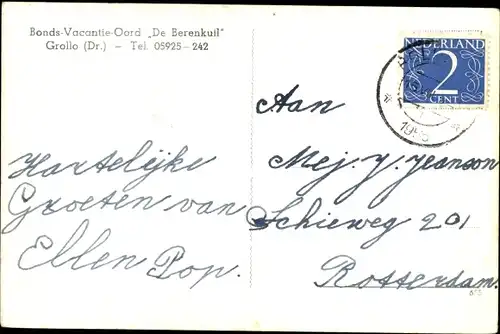 Bonds-Vacantie-Oord „De Berenkuil"
Grollo (Dr.) – Tel. 05925-242
NEDERLAND
2
CENT
Aan
Mej. Y. Jeanson
Schieweg 201
Rotterdam.
Hartelijke
Groeten van
Ellen Pop.